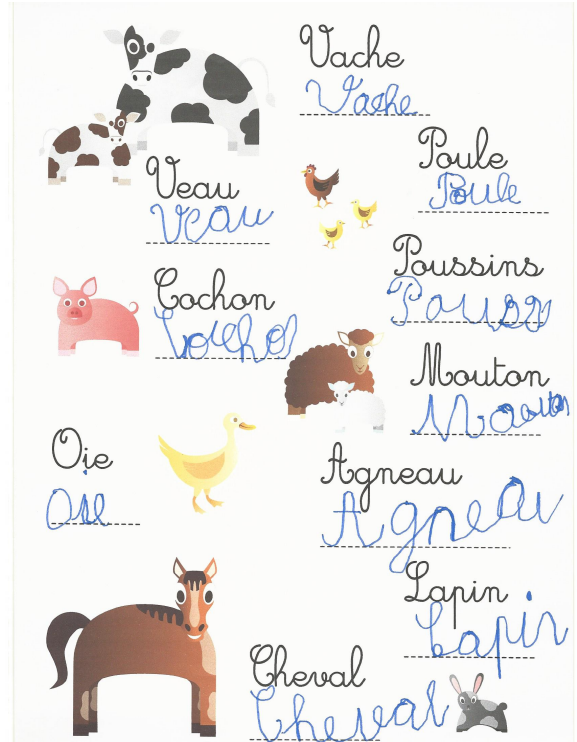 Vache
Vache
Poule
Poule
Veau
Veau
Poussins
Cochon
Mouton
Oie
Oie
Agneau
Agneau
Lapin
Lapin
Cheval
Cheval